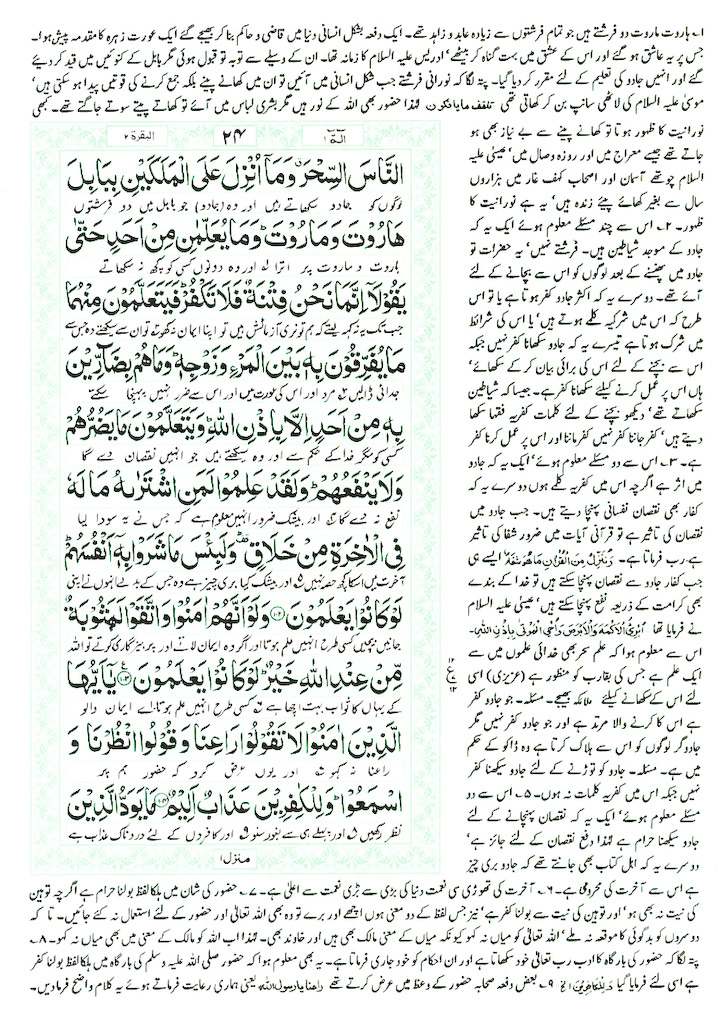 ۱۔ ہاروت ماروت دو فرشتے ہیں جو تمام فرشتوں سے زیادہ عابد و زاہد تھے۔ ایک دفعہ بشکل انسانی دنیا میں قاضی و حاکم بنا کر بھیجے گئے ایک عورت زہرہ کا مقدمہ پیش ہوا۔
جس پر یہ عاشق ہو گئے اور اس کے عشق میں بہت گناہ کر بیٹھے' ادریس علیہ السلام کا زمانہ تھا۔ ان کے وسیلے سے توبہ تو قبول ہوئی مگر بابل کے کنوئیں میں قید کر دیئے
گئے اور انہیں جادو کی تعلیم کے لئے مقرر کر دیا گیا۔ پتہ لگا کہ نورانی فرشتے جب شکل انسانی میں آئیں تو ان میں کھانے پینے بلکہ جمع کرنے کی قوتیں پیدا ہو سکتی ہیں'
موسیٰ علیہ السلام کی لاٹھی سانپ بن کر کھاتی تھی تلقف مایافکون لہٰذا حضور بھی اللہ کے نور ہیں مگر بشری لباس میں آئے تو کھاتے پیتے سوتے جاگتے تھے۔ کبھی
الٓمّٓ ۱
۲۴
البقرة ۲
النَّاسَ السِّحْرَ وَمَآ اُنْزِلَ عَلَى الْمَلَكَيْنِ بِبَابِلَ
لوگوں کو جادو سکھاتے ہیں اور وہ (جادو) جو بابل میں دو فرشتوں
هَارُوْتَ وَمَارُوْتَ وَمَا يُعَلِّمٰنِ مِنْ اَحَدٍ حَتّٰى
ہاروت و ماروت پر اترا اور وہ دونوں کسی کو کچھ نہ سکھاتے
يَقُوْلَآ اِنَّمَا نَحْنُ فِتْنَةٌ فَلَا تَكْفُرْ فَيَتَعَلَّمُوْنَ مِنْهُمَا
جب تک یہ نہ کہہ لیتے کہ ہم تو نری آزمائش ہیں تو اپنا ایمان نہ کھو تو ان سے سیکھتے وہ جس سے
مَا يُفَرِّقُوْنَ بِهٖ بَيْنَ الْمَرْءِ وَزَوْجِهٖ وَمَا هُمْ بِضَآرِّيْنَ
جدائی ڈالیں مرد اور اس کی عورت میں اور اس سے ضرر نہیں پہنچا سکتے
بِهٖ مِنْ اَحَدٍ اِلَّا بِاِذْنِ اللّٰهِ وَيَتَعَلَّمُوْنَ مَا يَضُرُّهُمْ
کسی کو مگر خدا کے حکم سے اور وہ سیکھتے ہیں جو انہیں نقصان دے گا
وَلَا يَنْفَعُهُمْ وَلَقَدْ عَلِمُوْا لَمَنِ اشْتَرٰىهُ مَا لَهٗ
نفع نہ دے گا اور بیشک ضرور انہیں معلوم ہے کہ جس نے یہ سودا لیا
فِى الْاٰخِرَةِ مِنْ خَلَاقٍ وَلَبِئْسَ مَا شَرَوْا بِهٖٓ اَنْفُسَهُمْ
آخرت میں اس کا کچھ حصہ نہیں اور بیشک کیا بری چیز ہے وہ جس کے بدلے انہوں نے اپنی
لَوْ كَانُوْا يَعْلَمُوْنَ ۝۱۰۲ وَلَوْ اَنَّهُمْ اٰمَنُوْا وَاتَّقَوْا لَمَثُوْبَةٌ
جانیں بیچیں کسی طرح انہیں علم ہوتا اور اگر وہ ایمان لاتے اور پرہیزگاری کرتے تو اللہ
مِّنْ عِنْدِ اللّٰهِ خَيْرٌ لَوْ كَانُوْا يَعْلَمُوْنَ ۝۱۰۳ يٰٓاَيُّهَا
کے یہاں کا ثواب بہت اچھا ہے کسی طرح انہیں علم ہوتا اے ایمان والو
الَّذِيْنَ اٰمَنُوْا لَا تَقُوْلُوْا رَاعِنَا وَقُوْلُوا انْظُرْنَا وَ
راعنا نہ کہو اور یوں عرض کرو کہ حضور ہم پر
اسْمَعُوْا وَلِلْكٰفِرِيْنَ عَذَابٌ اَلِيْمٌ ۝۱۰۴ مَا يَوَدُّ الَّذِيْنَ
نظر رکھیں اور پہلے ہی سے بغور سنو اور کافروں کے لئے دردناک عذاب ہے
منزل ۱
نورانیت کا ظہور ہوتا تو کھانے پینے سے بے نیاز بھی ہو
جاتے تھے جیسے معراج میں اور روزہ وصال میں' عیسیٰ علیہ
السلام چوتھے آسمان اور اصحاب کہف غار میں ہزاروں
سال سے بغیر کھائے پیئے زندہ ہیں' یہ ہے نورانیت کا
ظہور۔ ۲۔ اس سے چند مسئلے معلوم ہوئے ایک یہ کہ
جادو کے موجد شیاطین ہیں۔ فرشتے نہیں' یہ حضرات تو
جادو میں پھنسنے کے بعد لوگوں کو اس سے بچانے کے لئے
آئے تھے۔ دوسرے یہ کہ اکثر جادو کفر ہوتا ہے یا تو اس
طرح کہ اس میں شرکیہ کلمے ہوتے ہیں' یا اس کی شرائط
میں شرک ہوتا ہے تیسرے یہ کہ جادو سکھانا کفر نہیں جبکہ
اس سے بچنے کے لئے اس کی برائی بیان کر کے سکھائے'
ہاں اس پر عمل کرنے کیلئے سکھانا کفر ہے۔ جیسا کہ شیاطین
سکھاتے تھے' دیکھو بچنے کے لئے کلمات کفریہ فقہا سکھا
دیتے ہیں' کفر جاننا کفر نہیں کفر ماننا اور اس پر عمل کرنا کفر
ہے۔ ۳۔ اس سے دو مسئلے معلوم ہوئے' ایک یہ کہ جادو
میں اثر ہے اگرچہ اس میں کفریہ کلمے ہوں دوسرے یہ کہ
کفار بھی نقصان نفسانی پہنچا دیتے ہیں۔ جب جادو میں
نقصان کی تاثیر ہے تو قرآنی آیات میں ضرور شفا کی تاثیر
ہے، رب فرماتا ہے۔ وَنُنَزِّلُ مِنَ الْقُرْاٰنِ مَا هُوَ شِفَآءٌ ایسے ہی
جب کفار جادو سے نقصان پہنچا سکتے ہیں تو خدا کے بندے
بھی کرامت کے ذریعہ نفع پہنچا سکتے ہیں' عیسیٰ علیہ السلام
نے فرمایا تھا اُبْرِئُ الْاَكْمَهَ وَالْاَبْرَصَ وَاُحْىِ الْمَوْتٰى بِاِذْنِ اللّٰهِ۔
اس سے معلوم ہوا کہ علم سحر بھی خدائی علموں میں سے
ایک علم ہے جس کی بقارب کو منظور ہے (عزیزی) اسی
لئے اس کے سکھانے کیلئے ملائکہ بھیجے۔ مسئلہ۔ جو جادو کفر
ہے اس کا کرنے والا مرتد ہے اور جو جادو کفر نہیں مگر
جادوگر لوگوں کو اس سے ہلاک کرتا ہے وہ ڈاکو کے حکم
میں ہے۔ مسئلہ۔ جادو کو توڑنے کے لئے جادو سیکھنا کفر
نہیں جبکہ اس میں کفریہ کلمات نہ ہوں۔ ۵۔ اس سے دو
مسئلے معلوم ہوئے' ایک یہ کہ نقصان پہنچانے کے لئے
جادو سیکھنا حرام ہے لہٰذا دفع نقصان کے لئے جائز ہے'
دوسرے یہ کہ اہل کتاب بھی جانتے تھے کہ جادو بری چیز
ہے اس سے آخرت کی محرومی ہے۔ ۶۔ آخرت کی تھوڑی سی نعمت دنیا کی بڑی سے بڑی نعمت سے اعلیٰ ہے۔ ۷۔ حضور کی شان میں ہلکا لفظ بولنا حرام ہے اگرچہ توہین
کی نیت نہ بھی ہو' اور توہین کی نیت سے بولنا کفر ہے' نیز جس لفظ کے دو معنی ہوں اچھے اور برے تو وہ بھی اللہ تعالیٰ اور حضور کے لئے استعمال نہ کئے جائیں۔ تا کہ
دوسروں کو بدگوئی کا موقعہ نہ ملے' اللہ تعالیٰ کو میاں نہ کہو کیونکہ میاں کے معنی مالک بھی ہیں اور خاوند بھی۔ لہٰذا اب اللہ کو مالک کے معنی میں بھی میاں نہ کہو۔ ۸۔
پتہ لگا کہ حضور کی بارگاہ کا ادب رب تعالیٰ خود سکھاتا ہے اور ان احکام کو خود جاری فرماتا ہے۔ یہ بھی معلوم ہوا کہ حضور صلی اللہ علیہ وسلم کی بارگاہ میں ہلکا لفظ بولنا کفر
ہے اسی لئے فرمایا گیا وَلِلْكٰفِرِيْنَ الخ ۹۔ بعض دفعہ صحابہ حضور کے وعظ میں عرض کرتے تھے راعنا یا رسول اللہ یعنی ہماری رعایت فرماتے ہوئے یہ کلام واضح فرما دیں۔